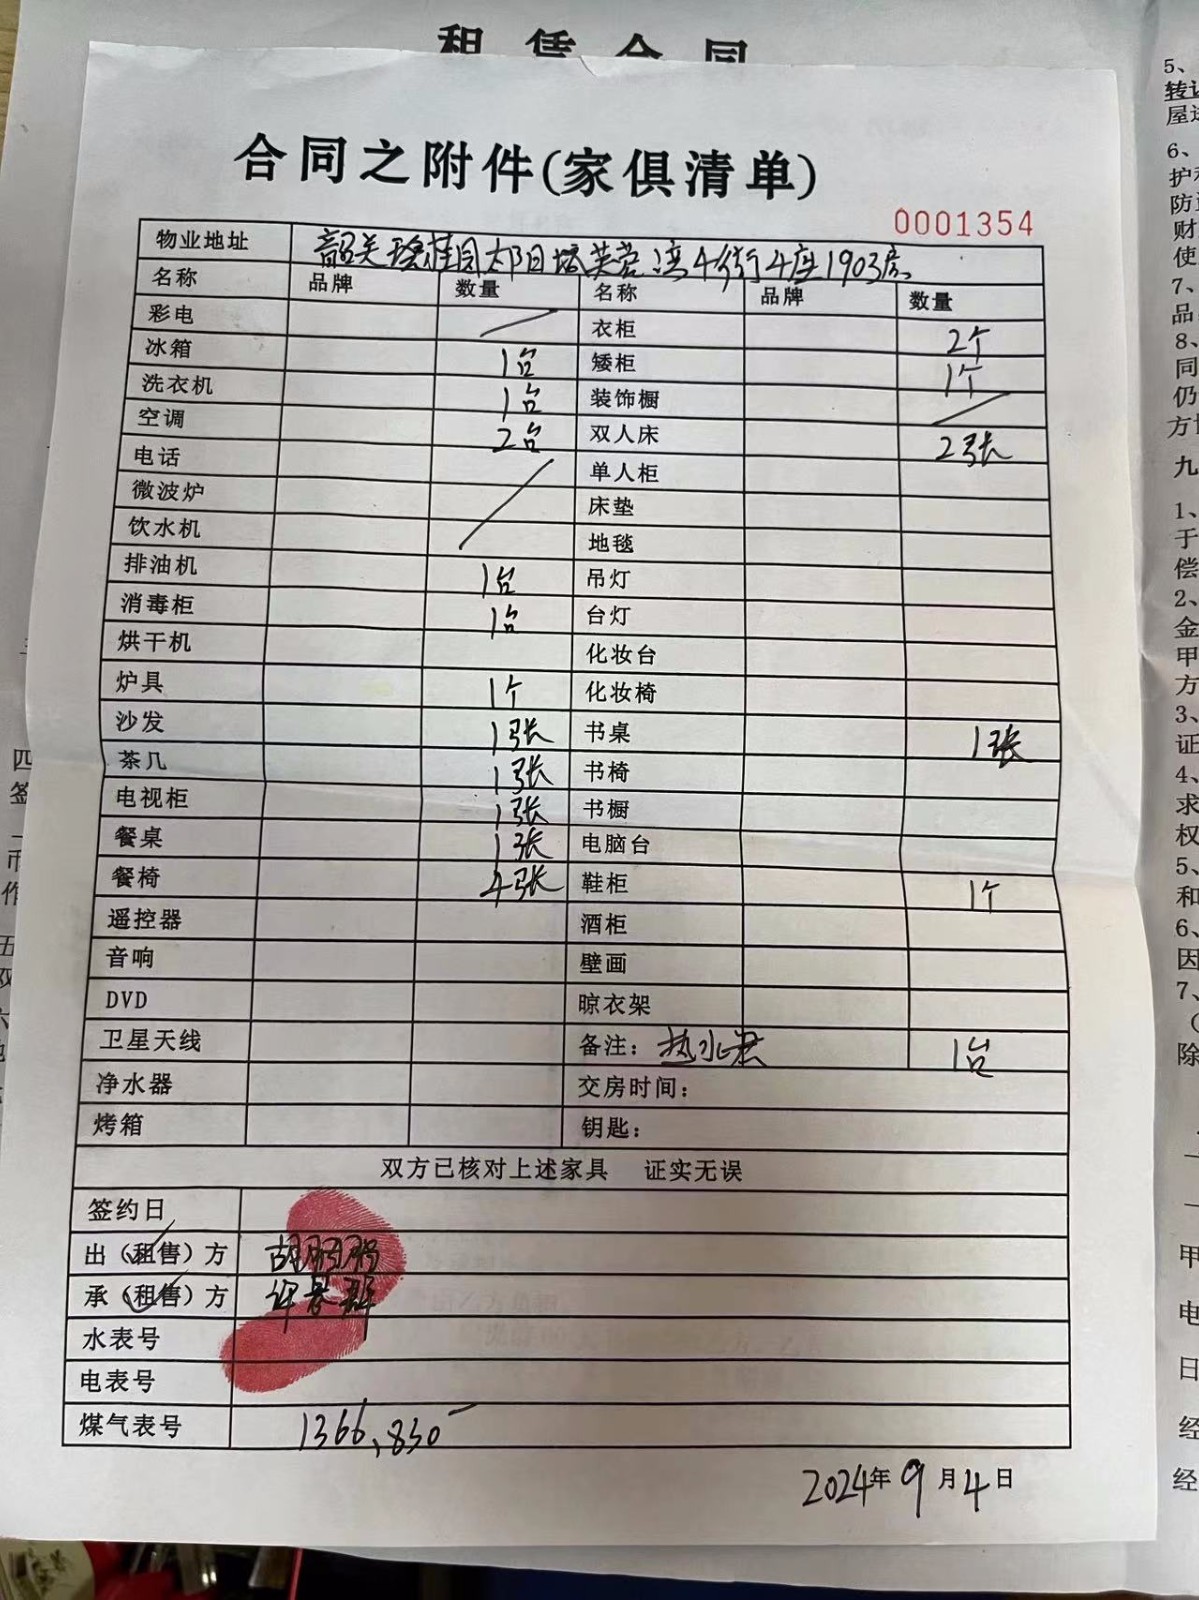 租赁合同
合同之附件(家俱清单)
0001354
物业地址 韶关碧桂园太阳城芙蓉湾4街4座1903房
名称 品牌 数量 名称 品牌 数量
彩电 衣柜 2个
冰箱 1台 矮柜 1个
洗衣机 1台 装饰橱
空调 2台 双人床 2张
电话 单人柜
微波炉 床垫
饮水机 地毯
排油机 1台 吊灯
消毒柜 1台 台灯
烘干机 化妆台
炉具 1个 化妆椅
沙发 1张 书桌 1张
茶几 1张 书椅
电视柜 1张 书橱
餐桌 1张 电脑台
餐椅 4张 鞋柜 1个
遥控器 酒柜
音响 壁画
DVD 晾衣架
卫星天线 备注: 热水器 1台
净水器 交房时间:
烤箱 钥匙:
双方已核对上述家具 证实无误
签约日
出（租售）方
承（租售）方
水表号
电表号
煤气表号 1366,830
2024年9月4日
5、
转让
6、
护
财
使
7、
品
8、
同
仍
方
九
1、
于
偿
2、
金
甲
方
3、
证
4、
求
权
5、
和
6、
因
7、
除
甲
电
日
经
经
四
签
五